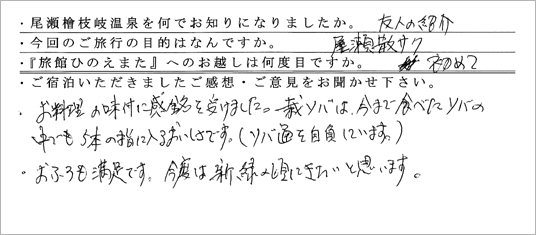 ・尾瀬檜枝岐温泉を何でお知りになりましたか。 友人の紹介
・今回のご旅行の目的はなんですか。 尾瀬散サク
・『旅館ひのえまた』へのお越しは何度目ですか。 初めて
・ご宿泊いただきましたご感想・ご意見をお聞かせ下さい。
・お料理の味付に感銘を受けました。裁ソバは、今まで食べたソバの
中でも5本の指に入るおいしさです。(ソバ通を自負しています。)
・おふろも満足です。今度は新緑の頃にきたいと思います。